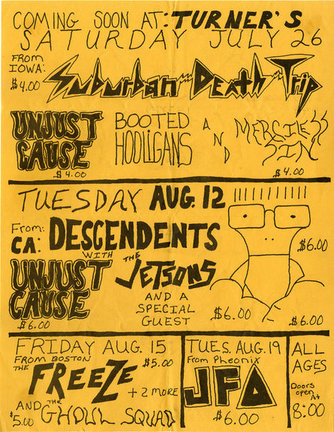 COMING SOON AT: TURNER'S
SATURDAY JULY 26
FROM
IOWA:
$4.00
Suburban Death Trip
UNJUST
CAUSE
$4.00
BOOTED
HOOLIGANS
AND
MERCILESS
SIN
$4.00
TUESDAY AUG. 12
From:
CA: DESCENDENTS
$6.00
WITH THE
UNJUST
CAUSE
$6.00
JETSONS
AND A
SPECIAL
GUEST
$6.00
$6.00
FRIDAY AUG. 15
FROM BOSTON
$5.00
THE FREEZE
+ 2 MORE
AND THE
GHOUL SQUAD
$5.00
TUES. AUG. 19
From Pheonix
JFA
$6.00
ALL
AGES
Doors
open
At
8:00